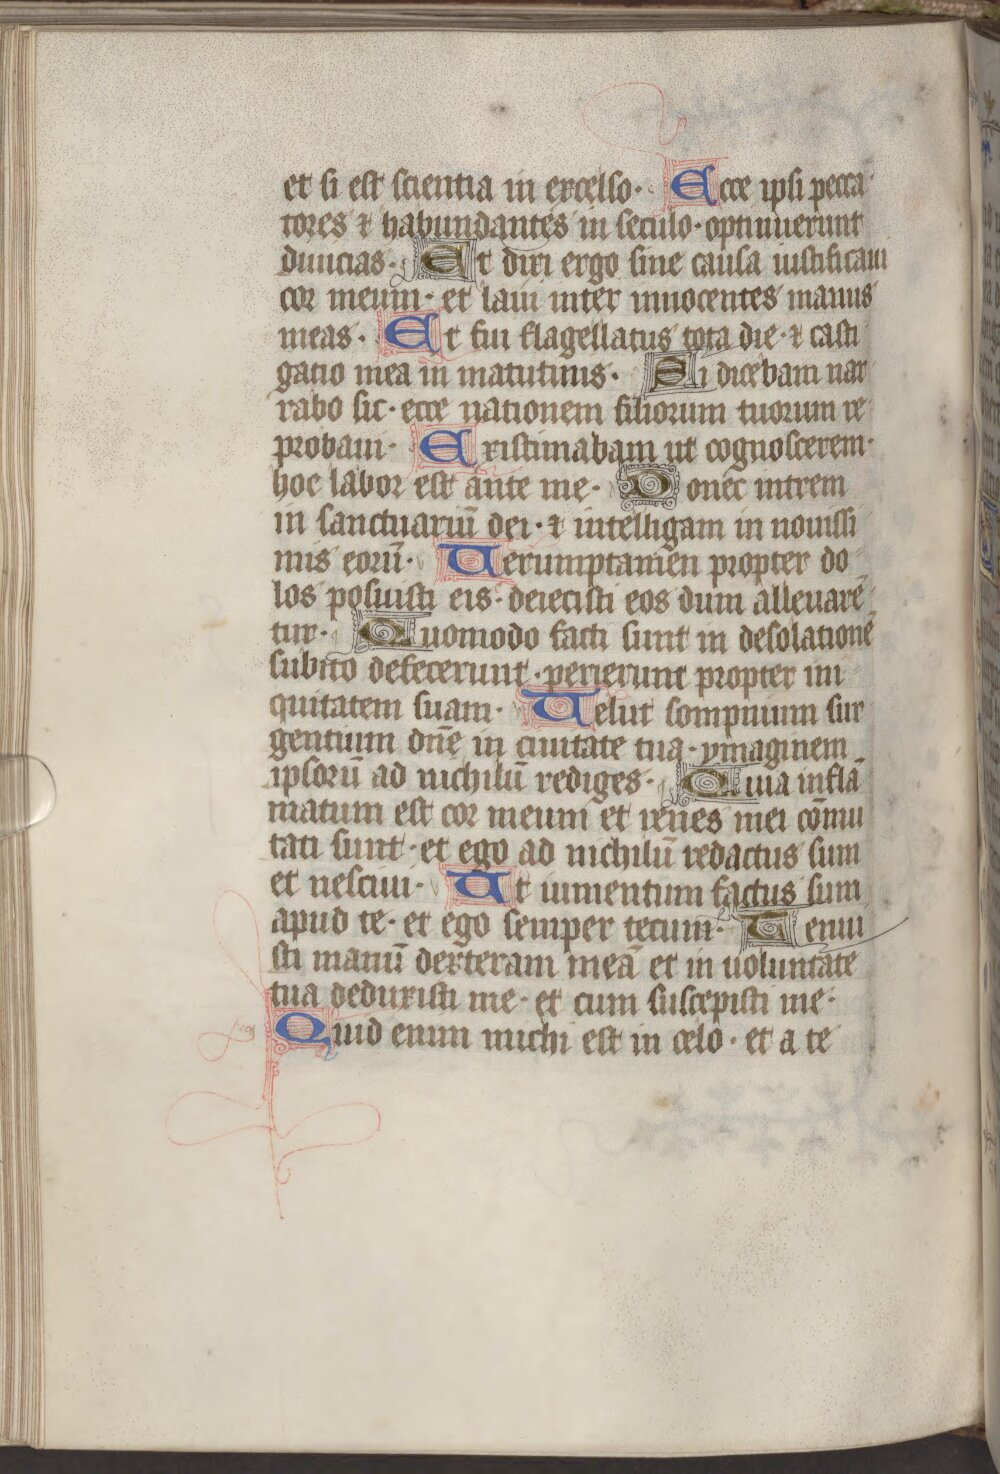 et si est scientia in excelso· Ecce ipsi pecca
tores ⁊ habundantes in seculo· optinuerunt
diuicias· Et dixi ergo sine causa iustificaui
cor meum· et laui inter innocentes manus
meas· Et fui flagellatus tota die· ⁊ casti
gatio mea in matutinis· Si dicebam nar
rabo sic· ecce nationem filiorum tuorum re
probaui· Existimabam ut cognoscerem·
hoc labor est ante me· Donec intrem
in sanctuariū dei· ⁊ intelligam in nouissi
mis eorū· Uerumptamen propter do
los posuisti eis· deiecisti eos dum alleuarē
tur· Quomodo facti sunt in desolationē
subito defecerunt· perierunt propter ini
quitatem suam· Uelut sompnium sur
gentium dn̄e in ciuitate tua· ymaginem
ipsorū ad nichilū rediges· Quia inflā
matum est cor meum et renes mei cōmu
tati sunt· et ego ad nichilū redactus sum
et nesciui· Ut iumentum factus sum
apud te· et ego semper tecum· Tenui
sti manū dexteram meā et in uoluntate
tua deduxisti me· et cum suscepisti me·
Quid enim michi est in celo· et a te